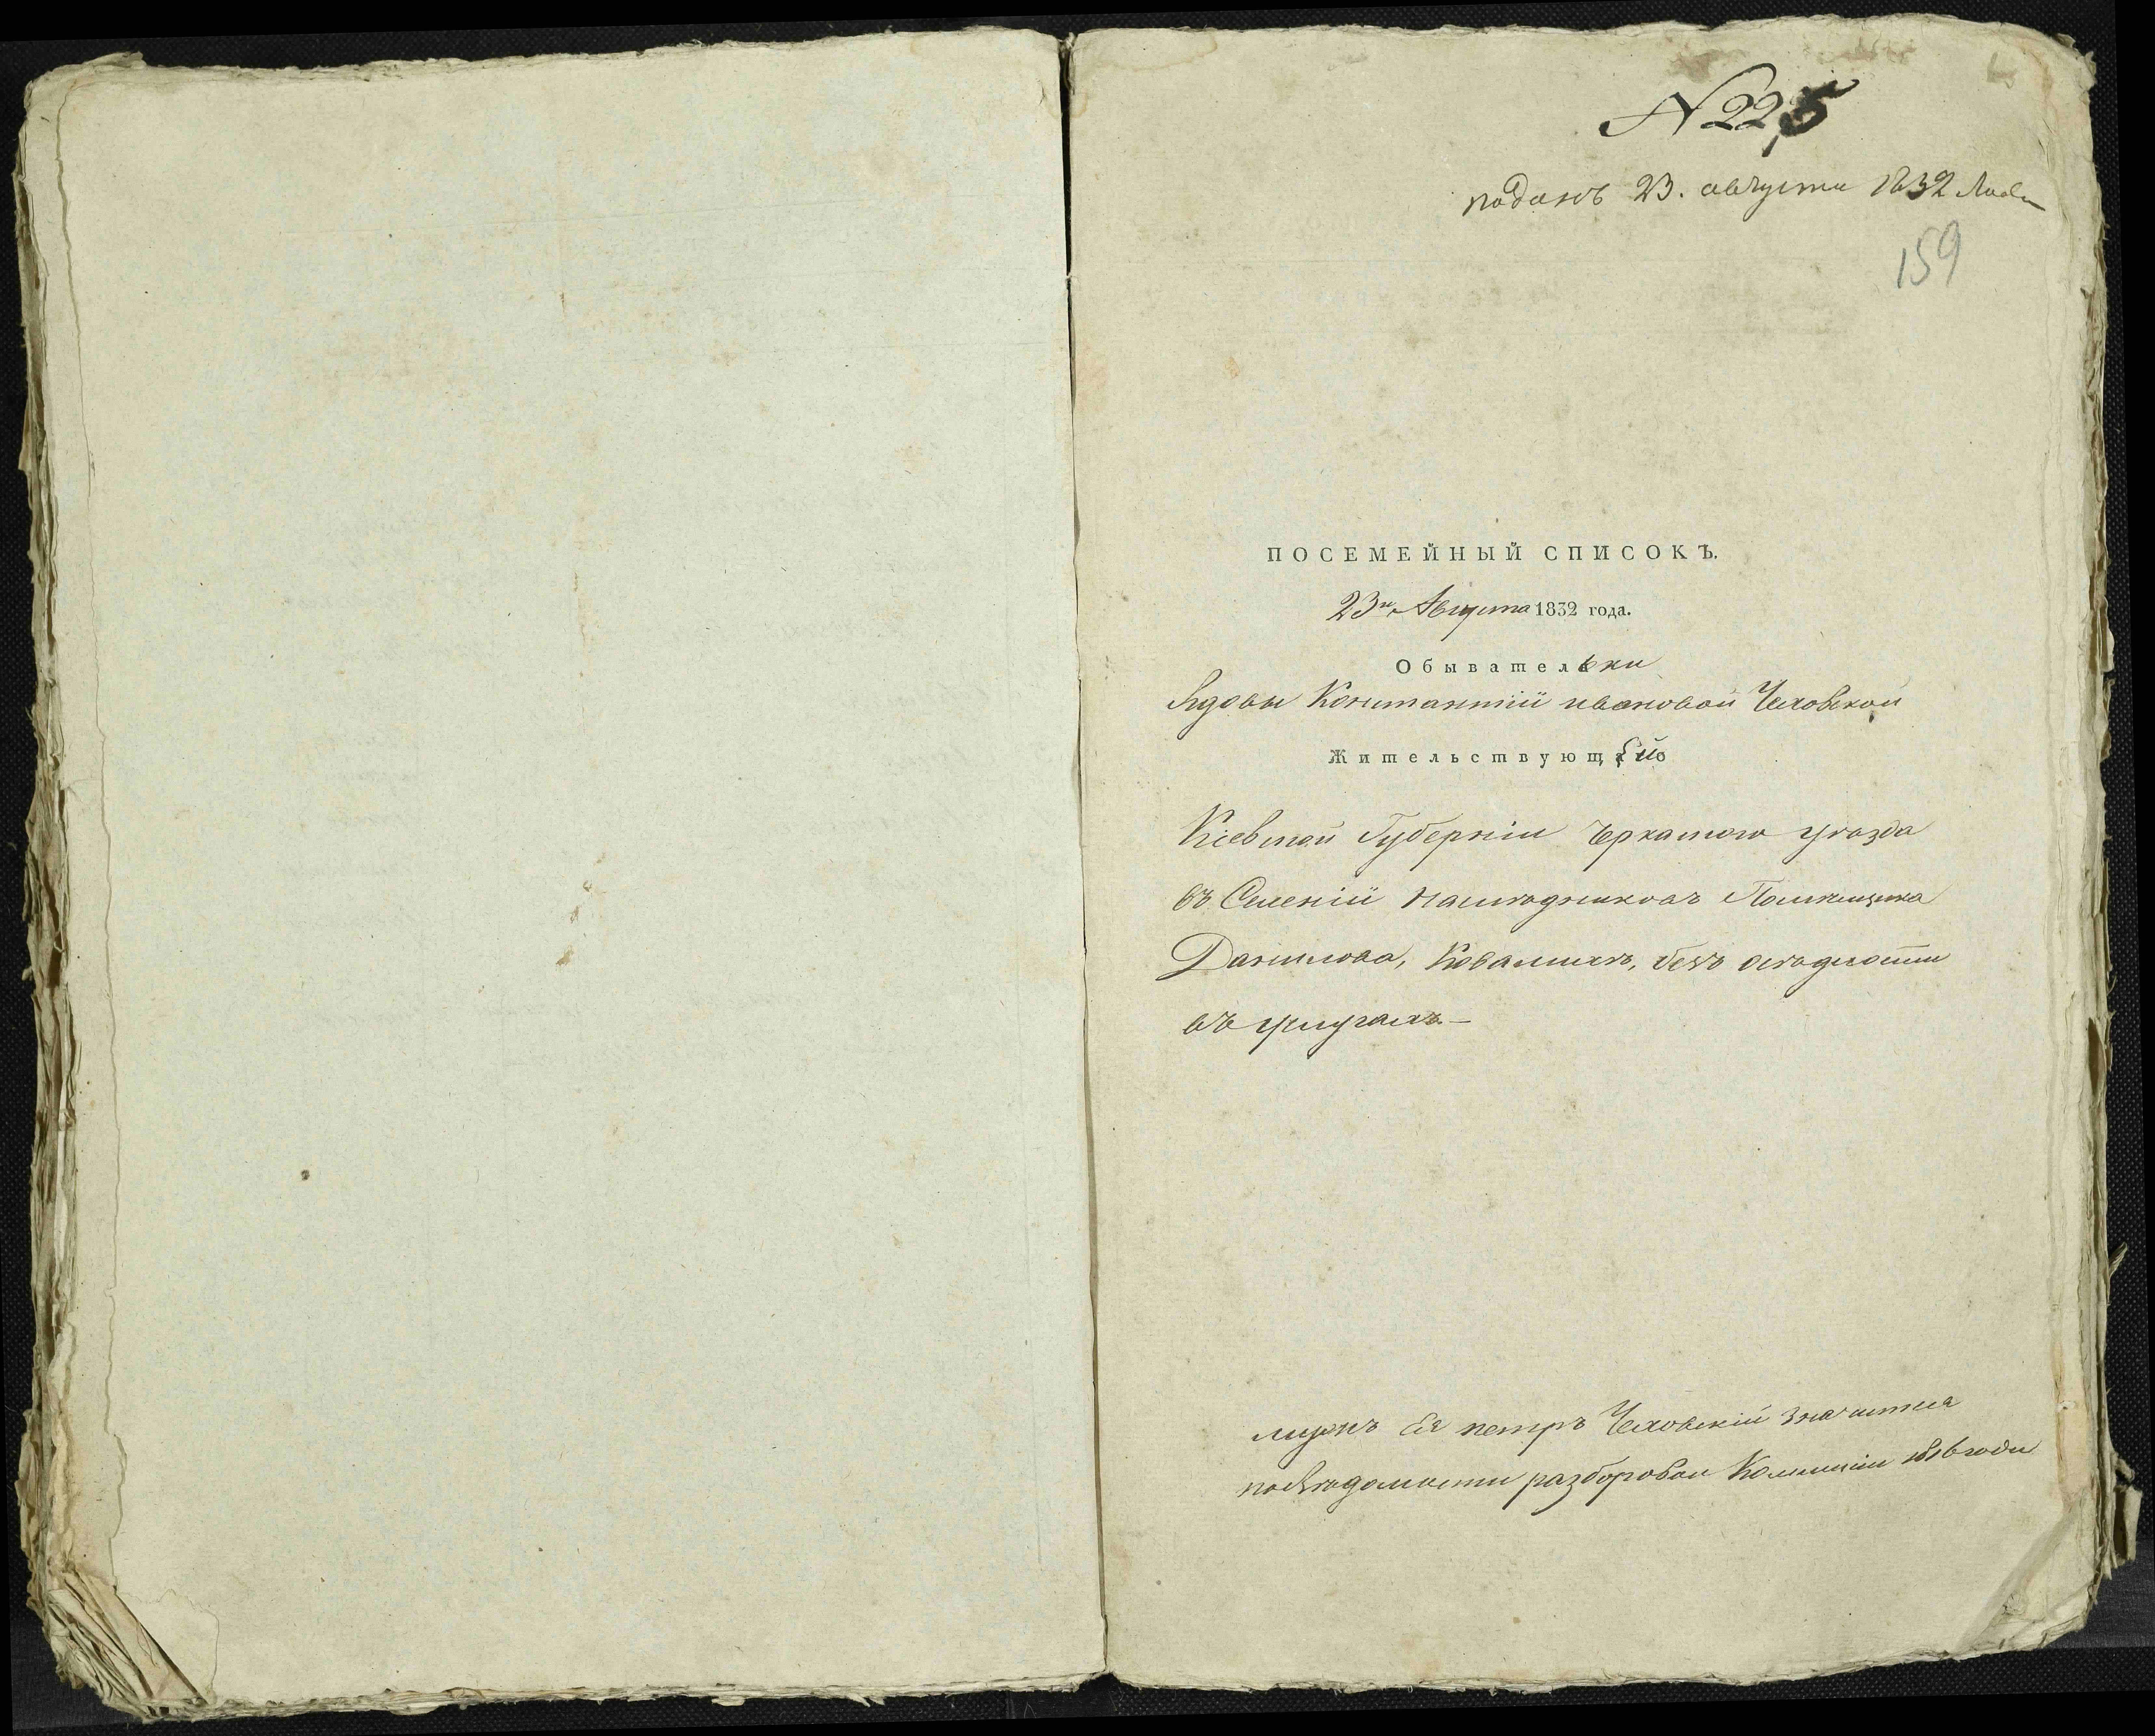 N 225
поданъ 23. августа 1832
159
ПОСЕМЕЙНЫЙ СПИСОКЪ.
23го Августа 1832 года.
Обывательки
Вдовы Константіи ивановой Чеховской
Жительствующей
Кіевской Губерніи Черкаского уѣзда
въ Селеніи Помѣщика
Данилова, безъ осѣдлости
въ услугахъ.—
мужъ Ея петръ Чеховскій значится
по вѣдомости разборовой Комисіи 1816 года